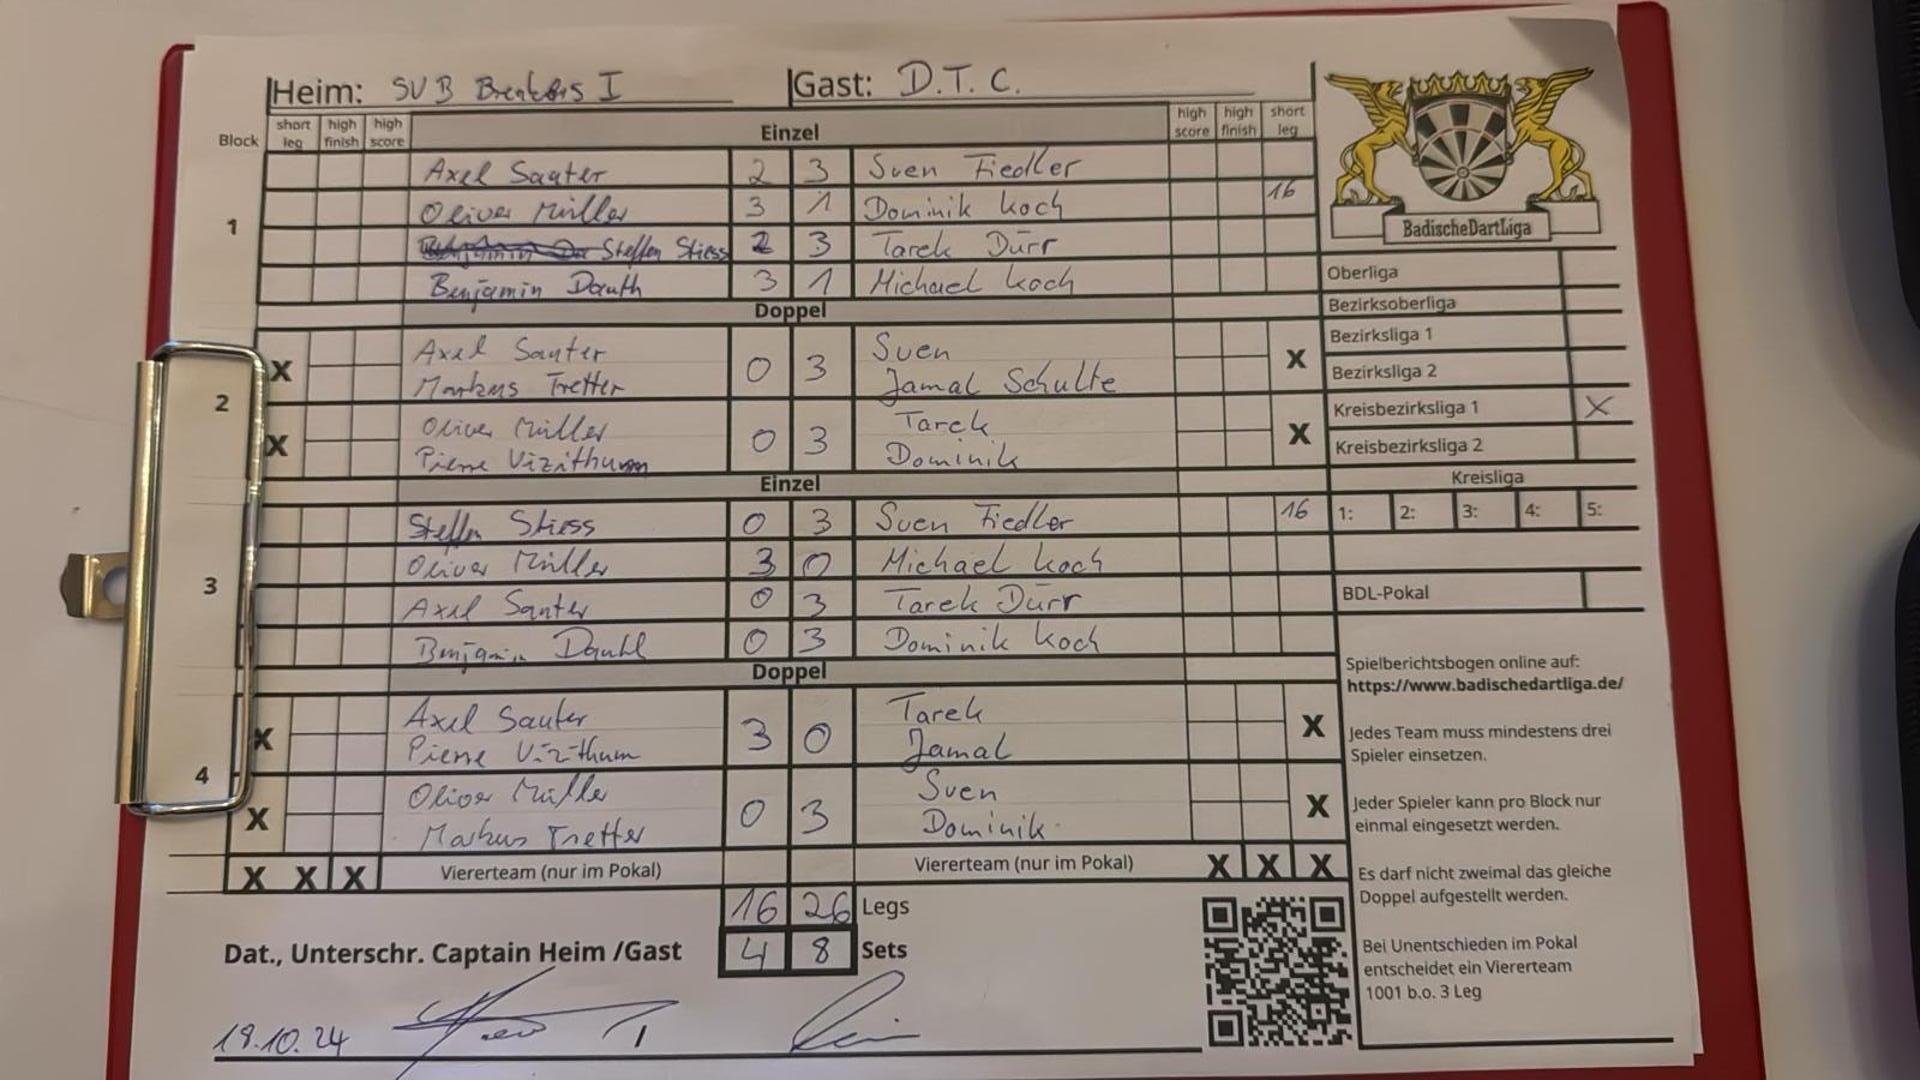 Heim: SVB Breakers I Gast: D.T.C.
Block short leg high finish high score Einzel high score high finish short leg
1
Axel Sauter 2 3 Sven Fiedler
Oliver Müller 3 1 Dominik Koch 16
Steffen Stiess 2 3 Tarek Dürr
Benjamin Dauth 3 1 Michael Koch
Doppel
2
X Axel Sauter 0 3 Sven X
Markus Tretter Jamal Schulte
X Oliver Müller 0 3 Tarek X
Pierre Vizithum Dominik
Einzel
3
Steffen Stiess 0 3 Sven Fiedler 16
Oliver Müller 3 0 Michael Koch
Axel Sauter 0 3 Tarek Dürr
Benjamin Dauth 0 3 Dominik Koch
Doppel
4
X Axel Sauter 3 0 Tarek X
Pierre Vizithum Jamal
X Oliver Müller 0 3 Sven X
Markus Tretter Dominik
X X X Viererteam (nur im Pokal) Viererteam (nur im Pokal) X X X
16 26 Legs
Dat., Unterschr. Captain Heim /Gast 4 8 Sets
18.10.24
BadischeDartLiga
Oberliga
Bezirksoberliga
Bezirksliga 1
Bezirksliga 2
Kreisbezirksliga 1 X
Kreisbezirksliga 2
Kreisliga
1: 2: 3: 4: 5:
BDL-Pokal
Spielberichtsbogen online auf:
https://www.badischedartliga.de/
Jedes Team muss mindestens drei
Spieler einsetzen.
Jeder Spieler kann pro Block nur
einmal eingesetzt werden.
Es darf nicht zweimal das gleiche
Doppel aufgestellt werden.
Bei Unentschieden im Pokal
entscheidet ein Viererteam
1001 b.o. 3 Leg